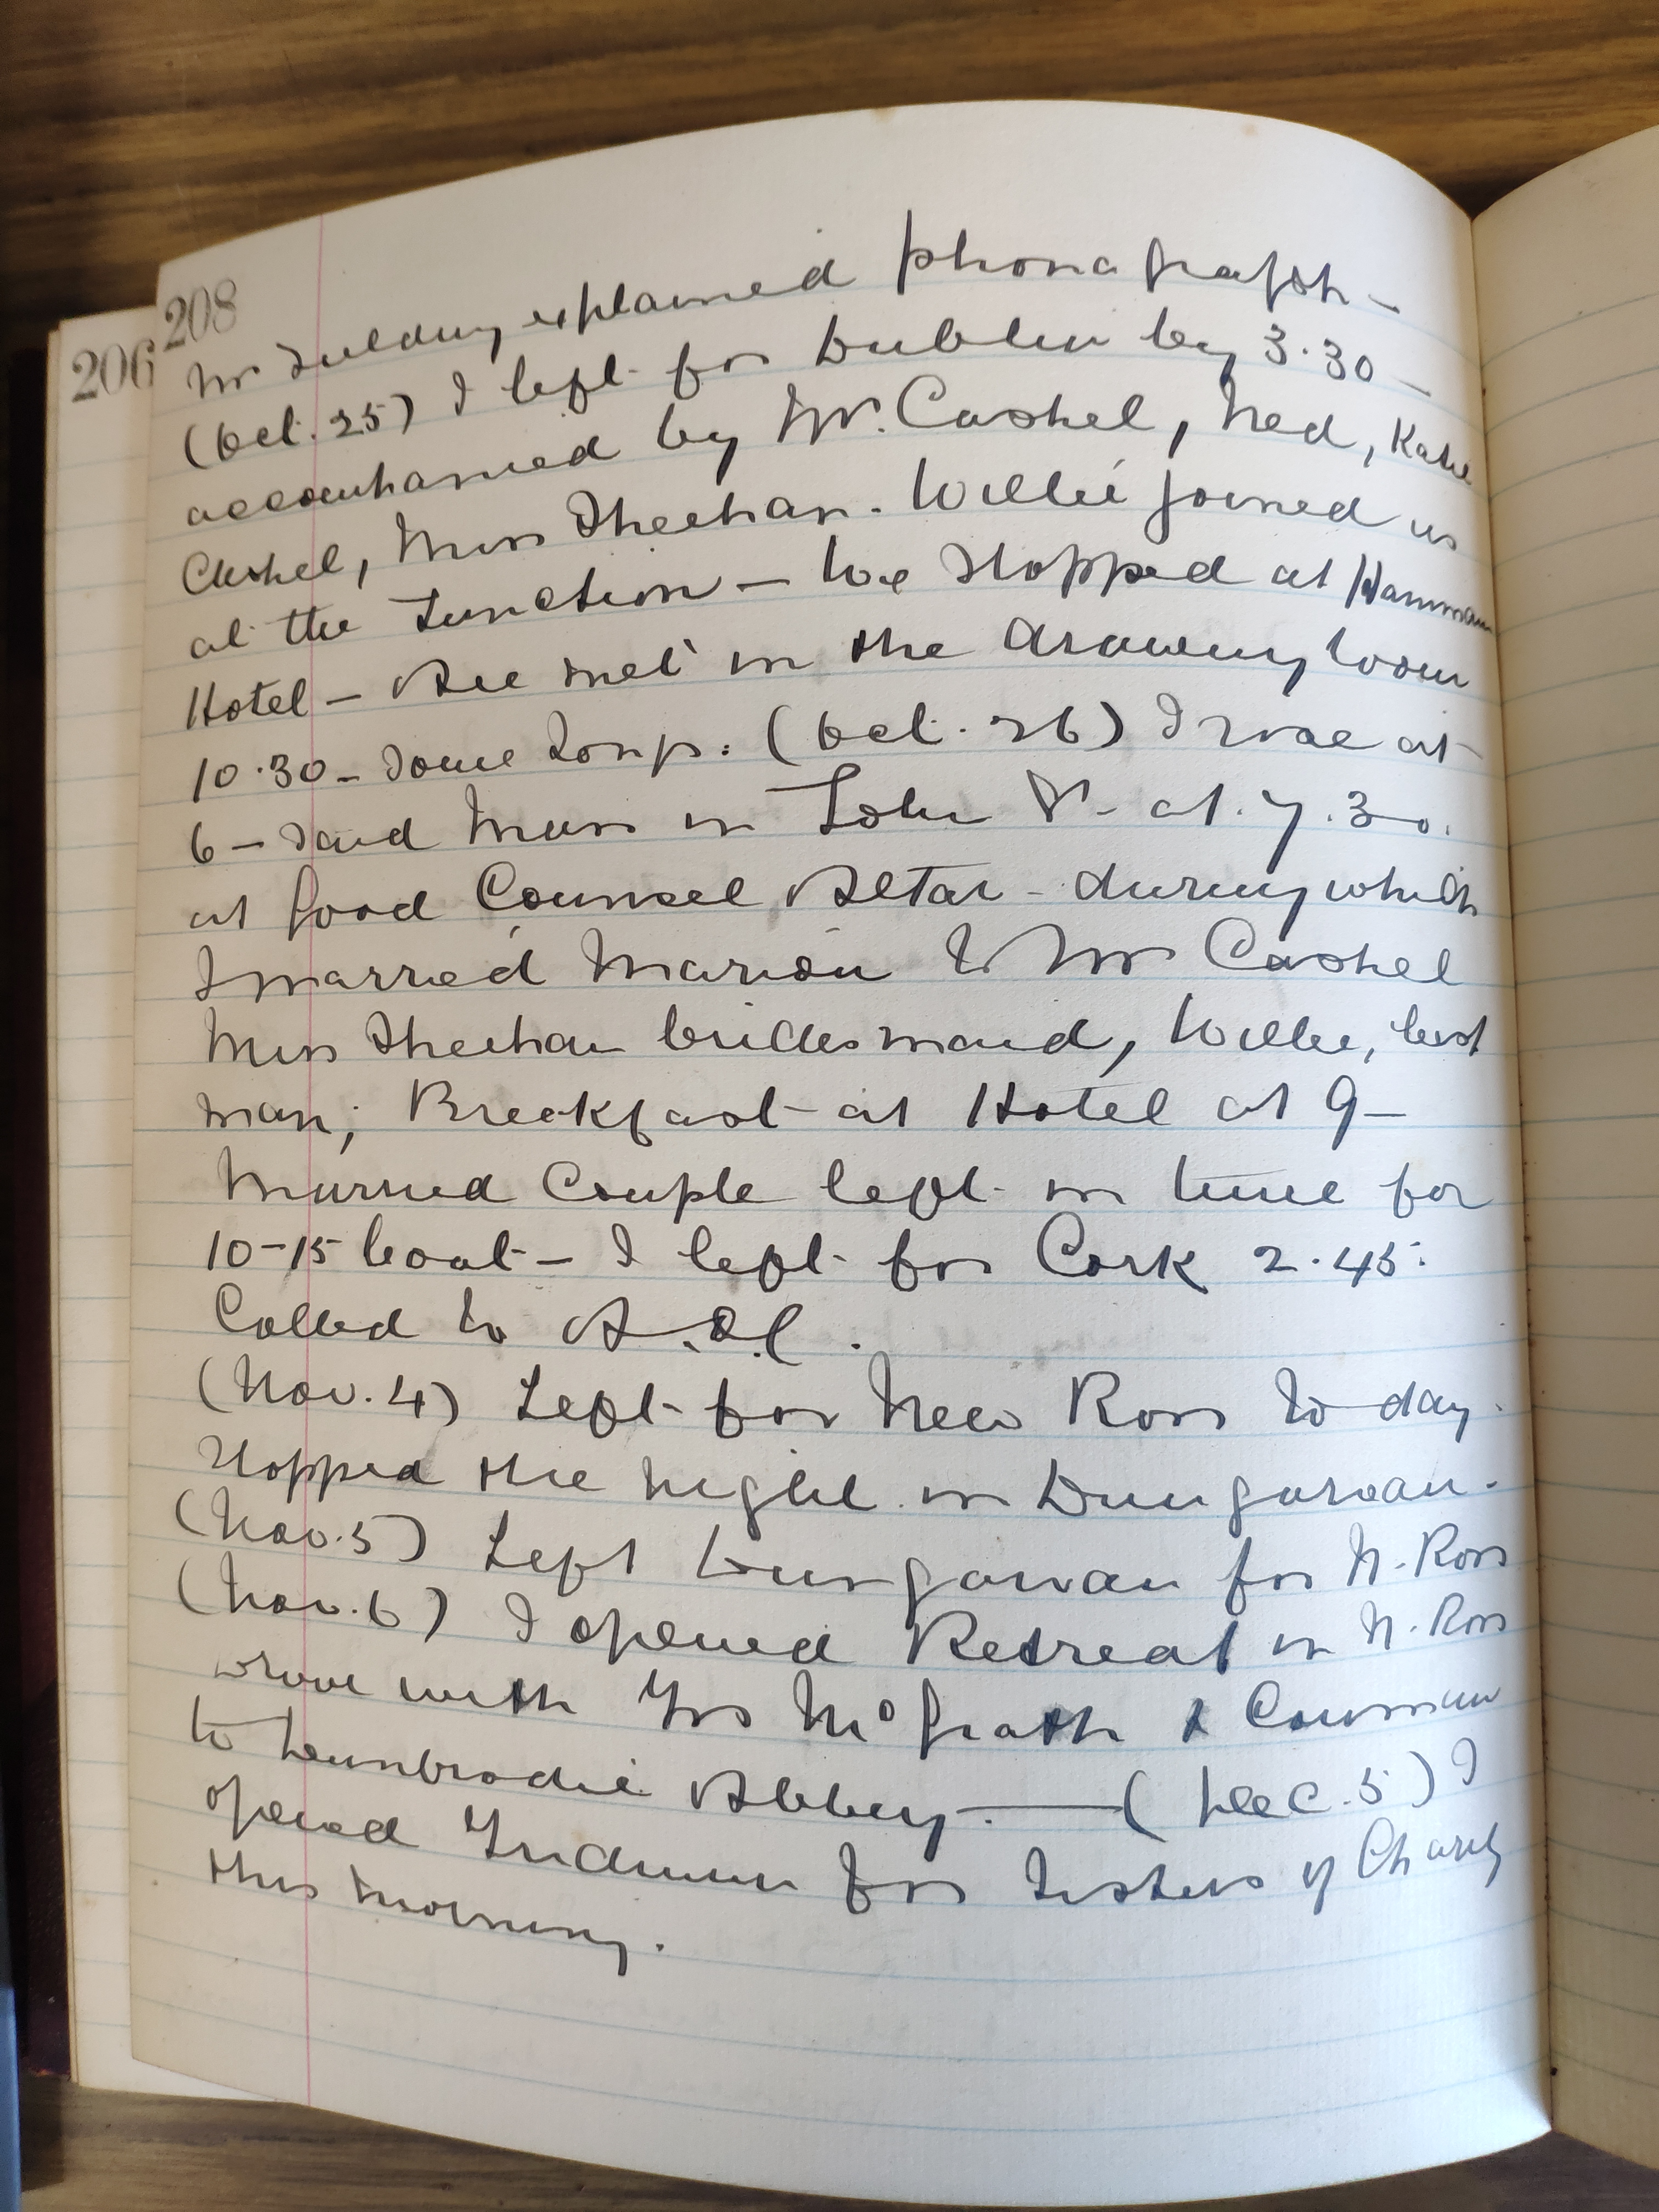 208
206
Mr explained phonograph –
(Oct. 25) I left for Dublin by 3.30 –
accompanied by Mr. Cashel, Ned, Katie
Cashel, Miss Sheehan. Willie joined us
at the Junction – We stopped at Hammam
Hotel – All met in the drawing room
10.30 – Some songs. (Oct. 26) I rose at
6 – Said Mass in John St. at 7.30.
at Good Counsel Altar – during which
I married Marion to Mr Cashel
Miss Sheehan bridesmaid, Willie, best
man; Breakfast at Hotel at 9 –
Married Couple left in time for
10-15 boat – I left for Cork 2.45.
Called to
(Nov. 4) Left for New Ross to day.
Stopped the night in Dungarvan.
(Nov. 5) Left Dungarvan for N. Ross
(Nov. 6) I opened Retreat in N. Ross
Drove with Frs McGrath & Crowmman
to Dunbrodie Abbey. — (Dec. 5) I
opened Triduum for Sisters of Charity
this morning.